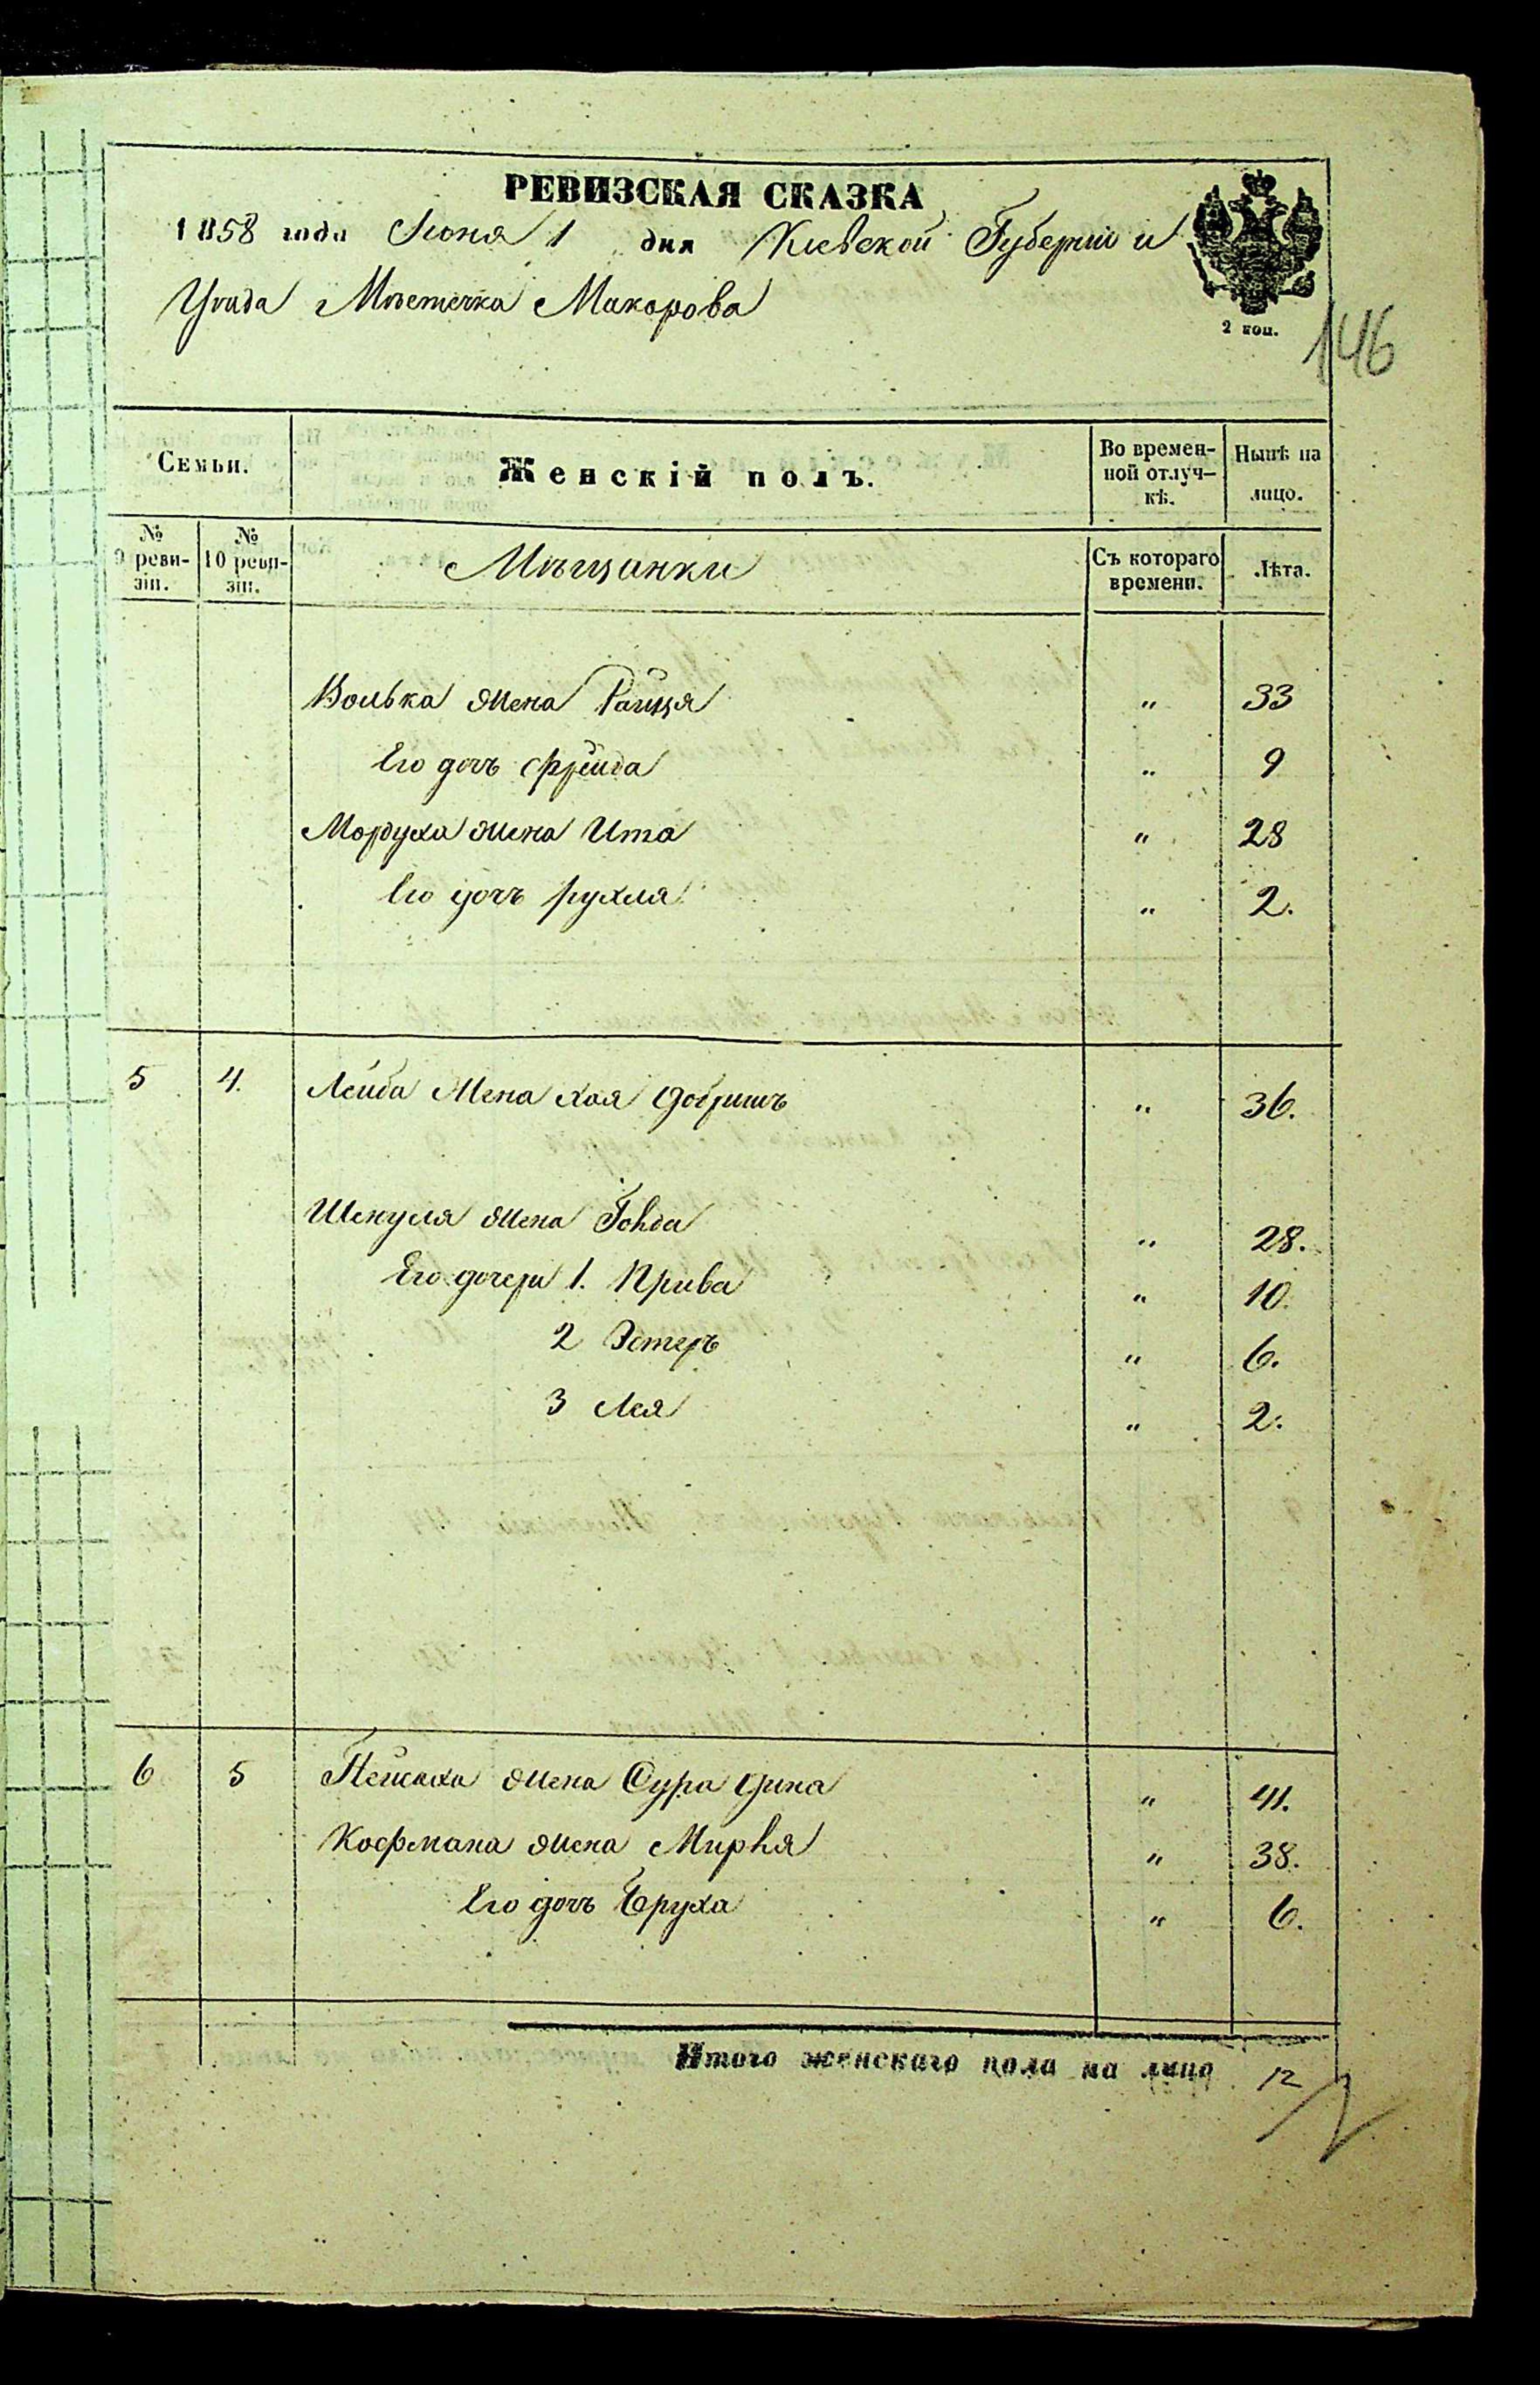 РЕВИЗСКАЯ СКАЗКА
1858 года Іюня 1 дня Кіевской Губерніи и
Уѣзда Мѣстечка Макорова
2 коп.
146
Семьи.
Женскій полъ.
Во времен-
ной отлуч-
кѣ.
Нынѣ на
лицо.
№
9 реви-
зіи.
№
10 реви-
зіи.
Мѣщанки
Съ котораго
времени.
Лѣта.
Волька жена Раиця " 33
Его дочь Фрейда " 9
Мордуха жена Ита " 28
Его дочь Рухля " 2.
5 4. Лейба жена Хая Добришъ " 36.
жена Гоhда " 28.
Его дочери 1. Прива " 10.
2 Эстеръ " 6.
3 Лея " 2.
6 5 Пейсаха жена Сура Дина " 41.
Кофмана жена Мирhя " 38.
Его дочь Бруха " 6.
Итого женскаго пола на лицо 12